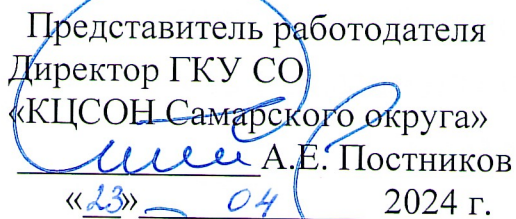 Представитель работодателя
Директор ГКУ СО
«КЦСОН Самарского округа»
А.Е. Постников
«23» 04 2024 г.